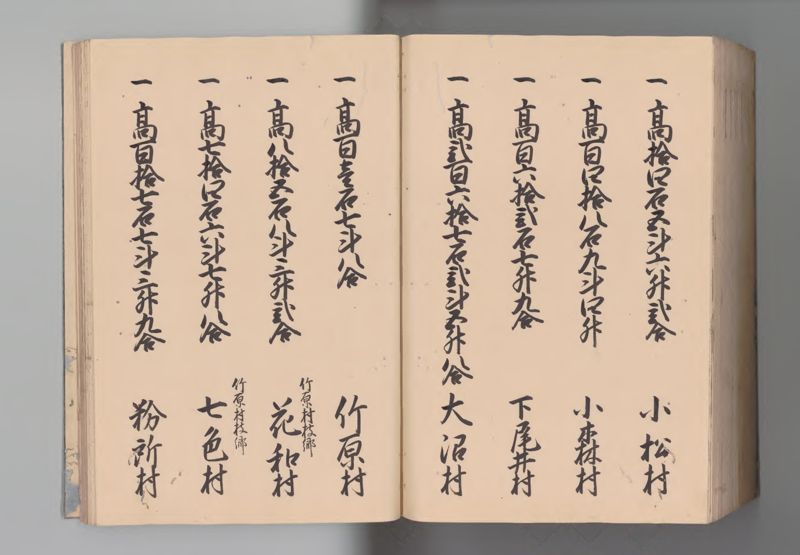 一 高拾四石五斗六升弐合 小松村
一 高百四拾八石九斗四升 小森村
一 高百六拾弐石七升九合 下尾井村
一 高弐百六拾七石弐斗五升八合 大沼村
一 高百壱石七斗八合 竹原村
一 高八拾五石八斗三升弐合 竹原村枝郷 花和村
一 高七拾四石六斗七升八合 竹原村枝郷 七色村
一 高百拾七石七斗三升九合 粉所村